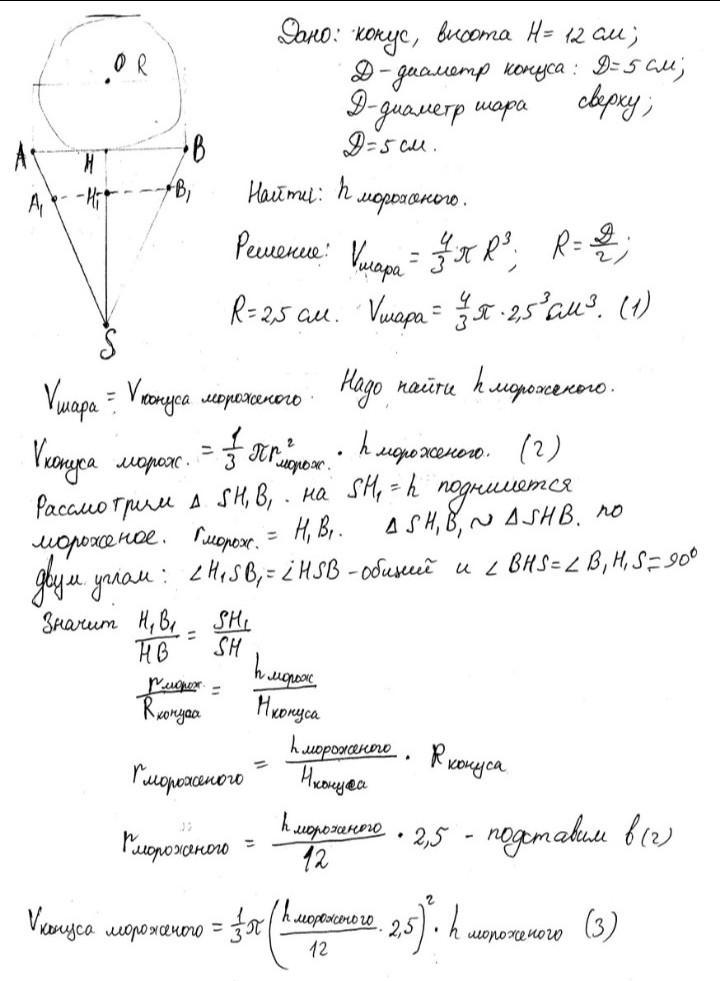 Дано: конус, высота H = 12 см;
Д - диаметр конуса: Д = 5 см;
Д - диаметр шара сверху;
Д = 5 см.
O R
A H B
A₁ H₁ B₁
S
Найти: h мороженого.
Решение: Vшара = 4/3 π R³; R = Д/2;
R = 2,5 см. Vшара = 4/3 π · 2,5³ см³. (1)
Vшара = Vконуса мороженого. Надо найти h мороженого.
Vконуса морож. = 1/3 π r²морож. · h мороженого. (2)
Рассмотрим Δ SH₁B₁. на SH₁ = h поднимется
мороженое. rморож. = H₁B₁. Δ SH₁B₁ ~ Δ SHB. по
двум углам: ∠H₁SB₁ = ∠HSB - общий и ∠BHS = ∠B₁H₁S = 90°
Значит H₁B₁/HB = SH₁/SH
rморож./Rконуса = hморож/Hконуса
rмороженого = hмороженого/Hконуса · Rконуса
rмороженого = hмороженого/12 · 2,5 - подставим в (2)
Vконуса мороженого = 1/3 π (hмороженого/12 · 2,5)² · h мороженого (3)